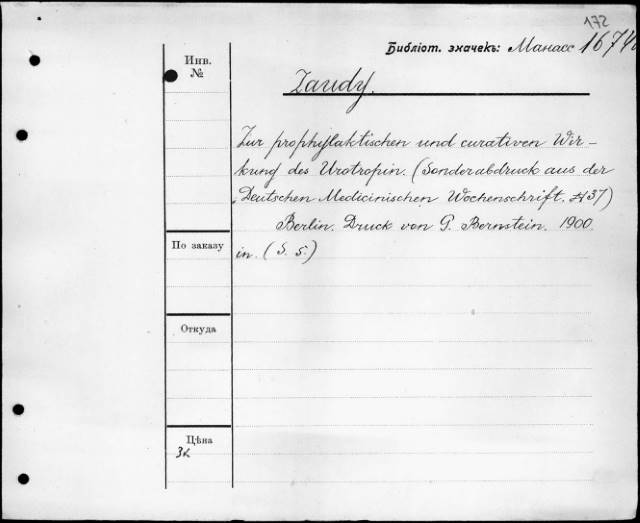 172
Библіот. значекъ: Манасс 1674
Инв.
№
Zaudy.
Zur prophylaktischen und curativen Wir-
kung des Urotropin. (Sonderabdruck aus der
„Deutschen Medicinischen Wochenschrift. № 37)
Berlin. Druck von G. Bernstein. 1900.
По заказу
in. (S. 5.)
Откуда
Цѣна